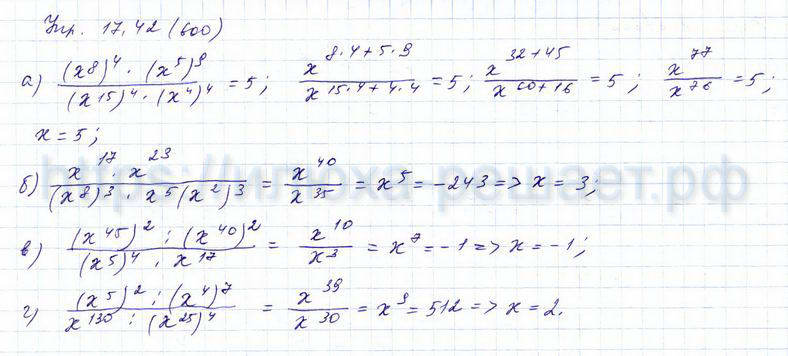 Упр. 17.42 (600)
а) (x8)^4 · (x^5)^9 / (x^15)^4 · (x^4)^4 = 5; x^8·4+5·9 / x^15·4+4·4 = 5; x^32+45 / x^60+16 = 5; x^77 / x^76 = 5;
x = 5;
б) x^17 · x^23 / (x^8)^3 · x^5(x^2)^3 = x^40 / x^35 = x^5 = -243 => x = 3;
в) (x^45)^2 : (x^40)^2 / (x^5)^4 · x^17 = x^10 / x^3 = x^7 = -1 => x = -1;
г) (x^5)^2 : (x^4)^7 / x^130 : (x^25)^4 = x^39 / x^30 = x^9 = 512 => x = 2.
https://илюха-решает.рф